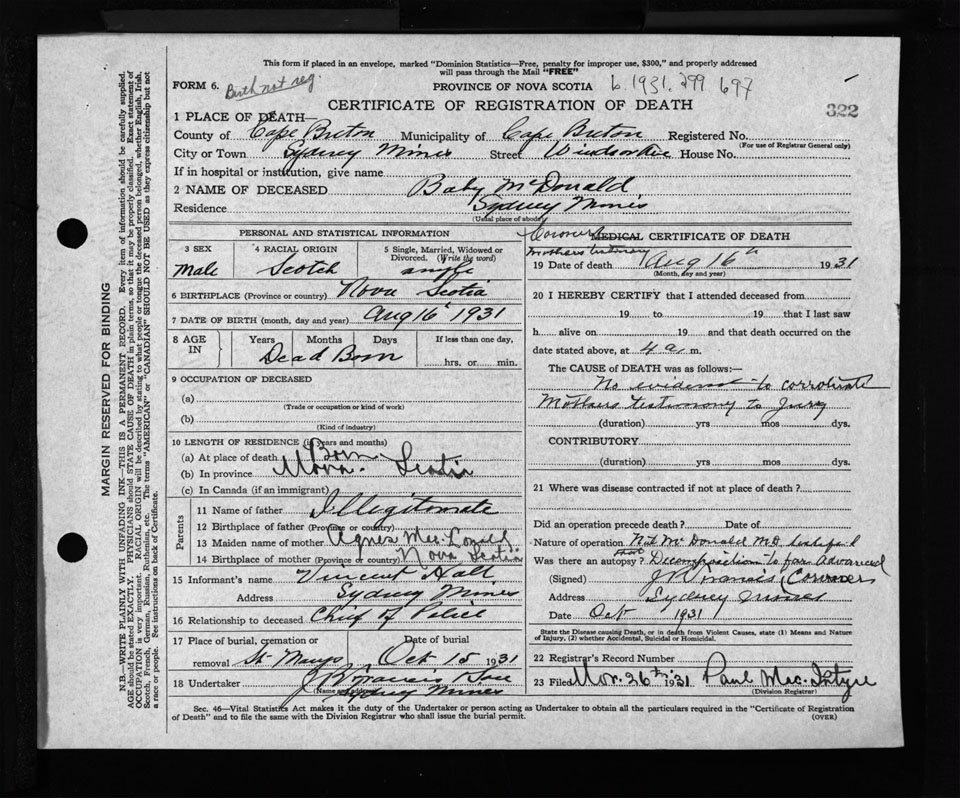 This form if placed in an envelope, marked "Dominion Statistics—Free, penalty for improper use, $300," and properly addressed
will pass through the Mail "FREE"
FORM 6. Birth not reg. PROVINCE OF NOVA SCOTIA 6 1931. 299 697
CERTIFICATE OF REGISTRATION OF DEATH 322
1 PLACE OF DEATH—
County of Cape Breton Municipality of Cape Breton Registered No.
(For use of Registrar General only)
City or Town Sydney Mines Street Windsor Ave House No.
If in hospital or institution, give name
2 NAME OF DECEASED Baby McDonald
Residence Sydney Mines
(Usual place of abode)
PERSONAL AND STATISTICAL INFORMATION
3 SEX 4 RACIAL ORIGIN 5 Single, Married, Widowed or
Divorced. (Write the word)
Male Scotch single
6 BIRTHPLACE (Province or country) Nova Scotia
7 DATE OF BIRTH (month, day and year) Aug 16 1931
8 AGE IN Years Months Days If less than one day,
Dead Born hrs. or min.
9 OCCUPATION OF DECEASED
(a)
(Trade or occupation or kind of work)
(b)
(Kind of industry)
10 LENGTH OF RESIDENCE (in years and months)
(a) At place of death Born
(b) In province Nova Scotia
(c) In Canada (if an immigrant)
Parents
11 Name of father Illegitimate
12 Birthplace of father (Province or country)
13 Maiden name of mother Agnes MacDonald
14 Birthplace of mother (Province or country) Nova Scotia
15 Informant's name Vincent Hall
Address Sydney Mines
16 Relationship to deceased Chief of Police
17 Place of burial, cremation or Date of burial
removal St. Marys Oct 15 1931
18 Undertaker J B Francis
(Name and address)
Sydney Mines
Coroners
MEDICAL CERTIFICATE OF DEATH
Mothers testimony
19 Date of death Aug 16th 1931
(Month, day and year)
20 I HEREBY CERTIFY that I attended deceased from
19 to 19 that I last saw
h alive on 19 and that death occurred on the
date stated above, at 4 a m.
The CAUSE of DEATH was as follows:—
No evidence to corroborate
Mothers testimony to Jury
(duration) yrs mos dys.
CONTRIBUTORY
(duration) yrs. mos. dys.
21 Where was disease contracted if not at place of death?
Did an operation precede death? Date of
Nature of operation McDonald M.D. testified
Was there an autopsy? that Decomposition to far Advanced
(Signed) J B Francis, Coroner
Address Sydney Mines
Date Oct 1931
State the Disease causing Death, or in death from Violent Causes, state (1) Means and Nature
of Injury, (2) whether Accidental, Suicidal or Homicidal.
22 Registrar's Record Number
23 Filed Nov. 26th 1931 Paul MacIntyre
(Division Registrar)
Sec. 46—Vital Statistics Act makes it the duty of the Undertaker or person acting as Undertaker to obtain all the particulars required in the "Certificate of Registration
of Death" and to file the same with the Division Registrar who shall issue the burial permit.
(OVER)
MARGIN RESERVED FOR BINDING
N.B.—WRITE PLAINLY WITH UNFADING INK—THIS IS A PERMANENT RECORD. Every item of information should be carefully supplied.
AGE should be stated EXACTLY. PHYSICIANS should STATE CAUSE OF DEATH in plain terms, so that it may be properly classified. Exact statement of
OCCUPATION is very important. RACIAL ORIGIN will be described by stating to what people or tongue the deceased person belonged, whether English, Irish,
Scotch, French, German, Russian, Ruthenian, etc. The terms "AMERICAN" or "CANADIAN" SHOULD NOT BE USED as they express citizenship but not
a race or people. See instructions on back of Certificate.